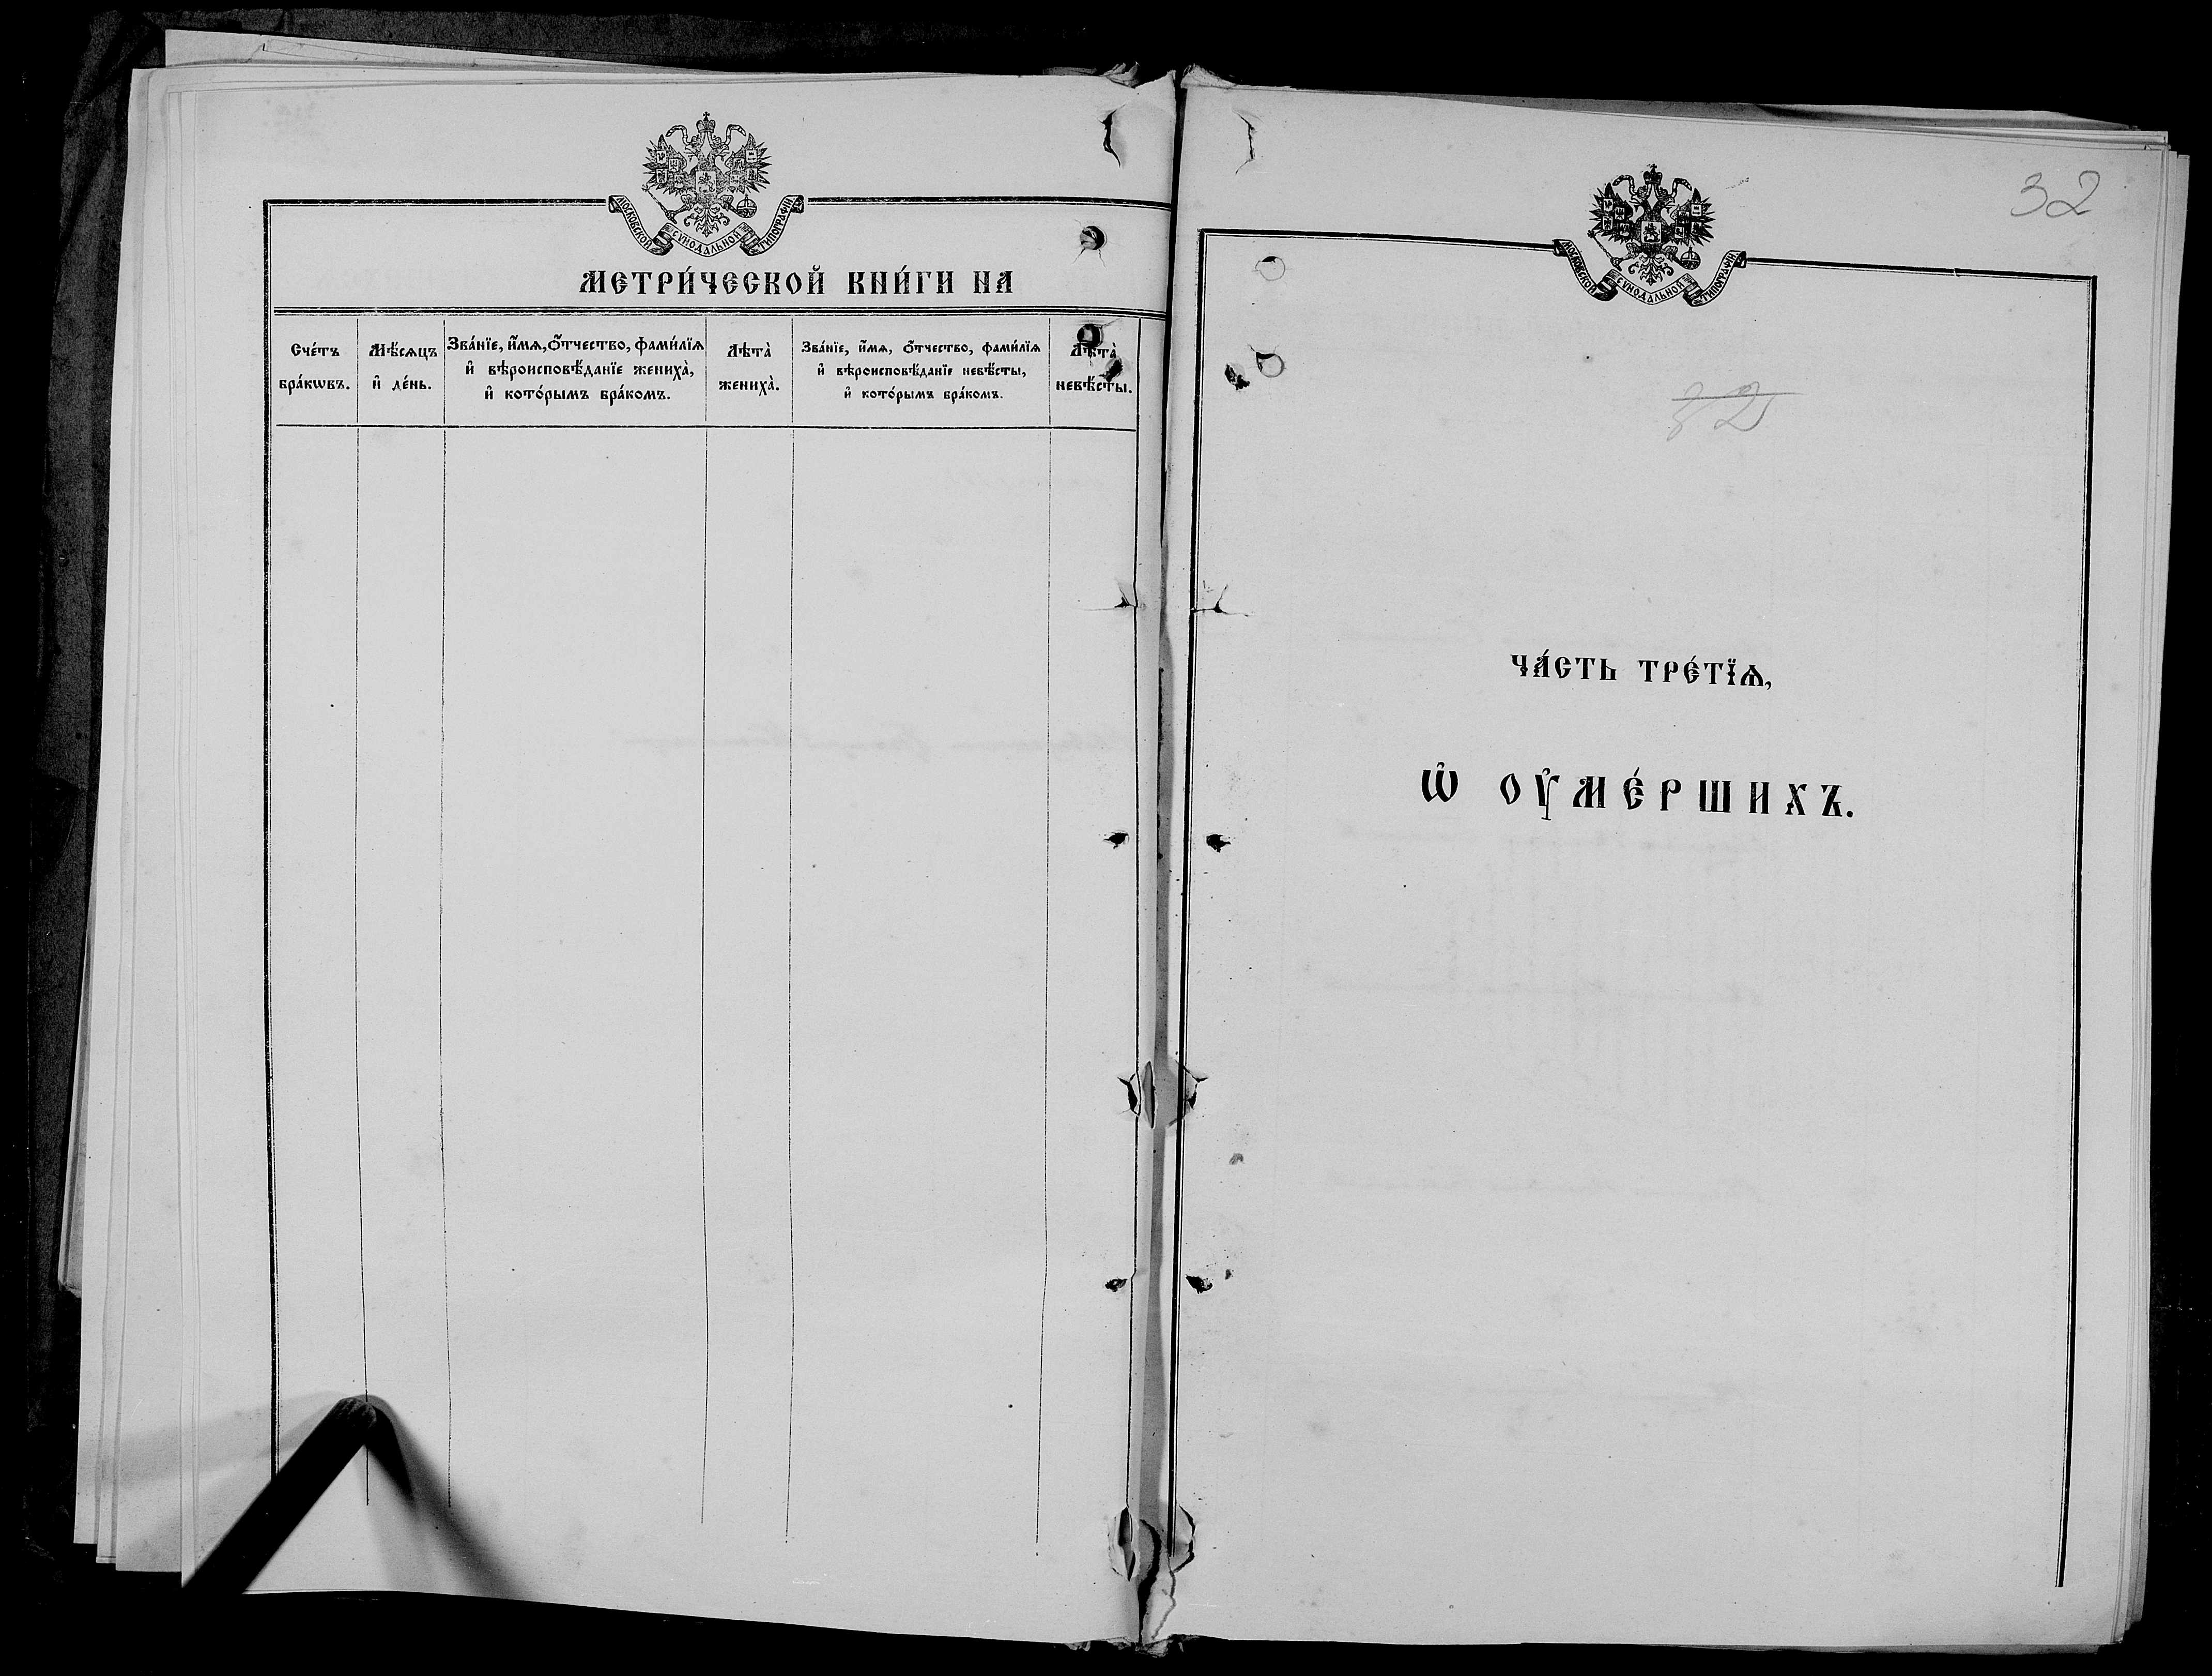 МОСКОВСКОЙ СѴНОДАЛЬНОЙ ТИПОГРАФІИ
МЕТРИ́ЧЕСКОЙ КНИ́ГИ НА
Сче́тъ
бра́кѡвъ.
Мѣ́сѧцъ
и҆ де́нь.
Зва́нїе, и҆́мѧ, ѻ҆́тчество, фами́лїѧ
и҆ вѣроисповѣ́данїе жениха̀,
и҆ кото́рымъ бра́комъ.
Лѣта̀
жениха̀.
Зва́нїе, и҆́мѧ, ѻ҆́тчество, фами́лїѧ
и҆ вѣроисповѣ́данїе невѣ́сты,
и҆ кото́рымъ бра́комъ.
Лѣта̀
невѣ́сты.
32
МОСКОВСКОЙ СѴНОДАЛЬНОЙ ТИПОГРАФІИ
32
ЧА́СТЬ ТРЕ́ТЇѦ,
Ѡ҆ ОУ҆МЕ́РШИХЪ.